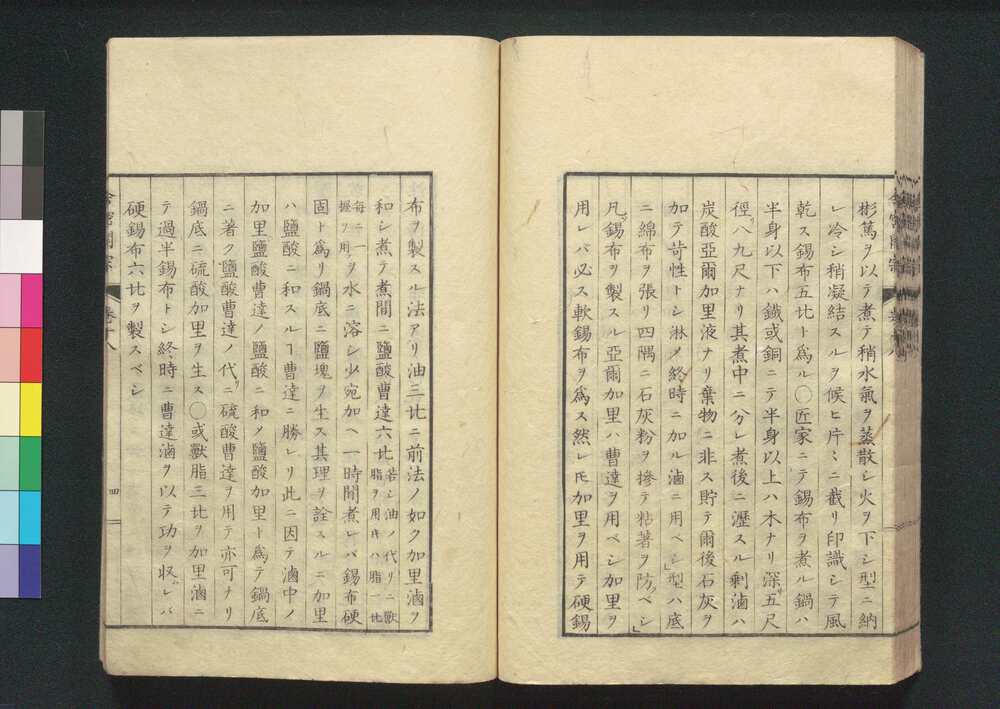 彬篤ヲ以テ煮テ稍水氣ヲ蒸散シ火ヲ下シ型ニ納
レ冷シ稍凝結スルヲ候ヒ片〻ニ截リ印識シテ風
乾ス錫布五比ト爲ル〇匠家ニテ錫布ヲ煮ル鍋ハ
半身以下ハ鐵或銅ニテ半身以上ハ木ナリ深サ五尺
徑リ八九尺ナリ其煮中ニ分レ煮後ニ瀝スル剰滷ハ
炭酸亞爾加里液ナリ棄物ニ非ス貯テ爾後石灰ヲ
加テ苛性トシ淋メ終時ニ加ル滷ニ用ベシ」型ハ底
ニ綿布ヲ張リ四隅ニ石灰粉ヲ摻テ粘著ヲ防クベシ」
凡ソ錫布ヲ製スル亞爾加里ハ曹達ヲ用ベシ加里ヲ
用レバ必ス軟錫布ヲ爲ス然レ𪜈加里ヲ用テ硬錫
布ヲ製スル法アリ油三比ニ前法ノ如ク加里滷ヲ
和シ煮テ煮間ニ鹽酸曹達六比若シ油ノ代リニ獸脂ヲ用レハ脂一比
毎ニ一握ヲ用ヲ水ニ溶シ少宛加ヘ一時間煮レバ錫布硬
固ト爲リ鍋底ニ鹽塊ヲ生ス其理ヲ詮スルニ加里
ハ鹽酸ニ和スルヿ曹達ニ勝レリ此ニ因テ滷中ノ
加里鹽酸曹達ノ鹽酸ニ和メ鹽酸加里ト爲テ鍋底
ニ著ク鹽酸曹達ノ代リニ硫酸曹達ヲ用テ亦可ナリ
鍋底ニ硫酸加里ヲ生ス〇或獸脂三比ヲ加里滷ニ
テ過半錫布トシ終時ニ曹達滷ヲ以テ功ヲ収レバ
硬錫布六比ヲ製スベシ
四